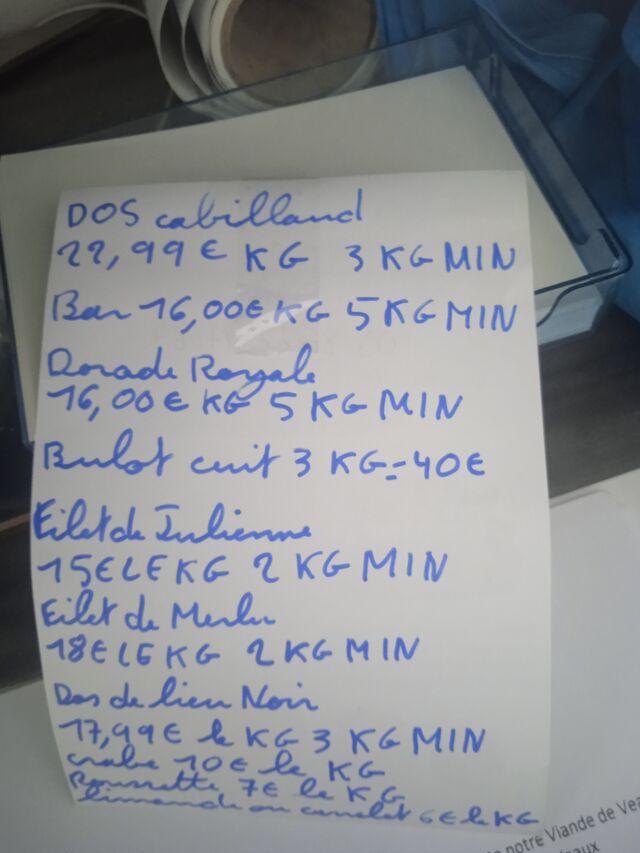 DOS cabillaud
22,99€ KG 3 KG MIN
Bar 16,00€ KG 5 KG MIN
Dorade Royale
16,00€ KG 5 KG MIN
Bulot cuit 3 KG=40€
Filet de Julienne
15€ LE KG 2 KG MIN
Filet de Merlu
18€ LE KG 2 KG MIN
Dos de lieu Noir
17,99€ le KG 3 KG MIN
crabe 10€ le KG
Roussette 7€ le KG
limande ou carrelet 6€ le KG
notre Viande de